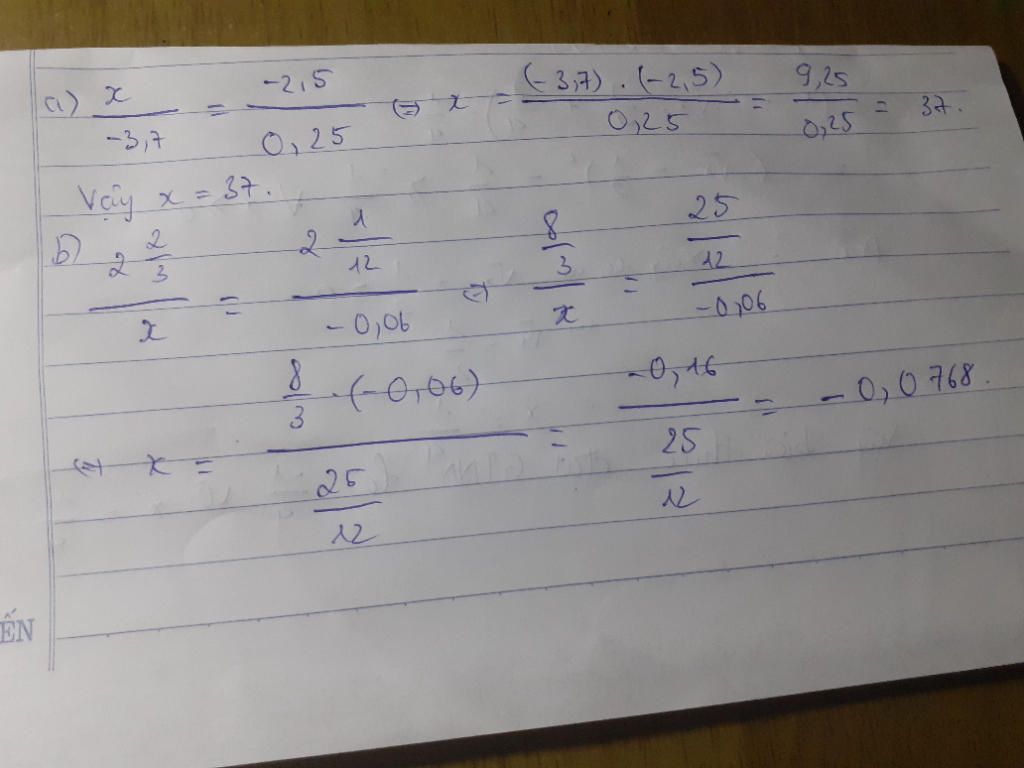 a) x/-3,7 = -2,5/0,25 (=) x = (-3,7).(-2,5)/0,25 = 9,25/0,25 = 37.
Vậy x = 37.
b) 2 2/3 / x = 2 1/12 / -0,06 (=) 8/3 / x = 25/12 / -0,06
(=) x = 8/3 . (-0,06) / 25/12 = -0,16 / 25/12 = -0,0768.
ẾN